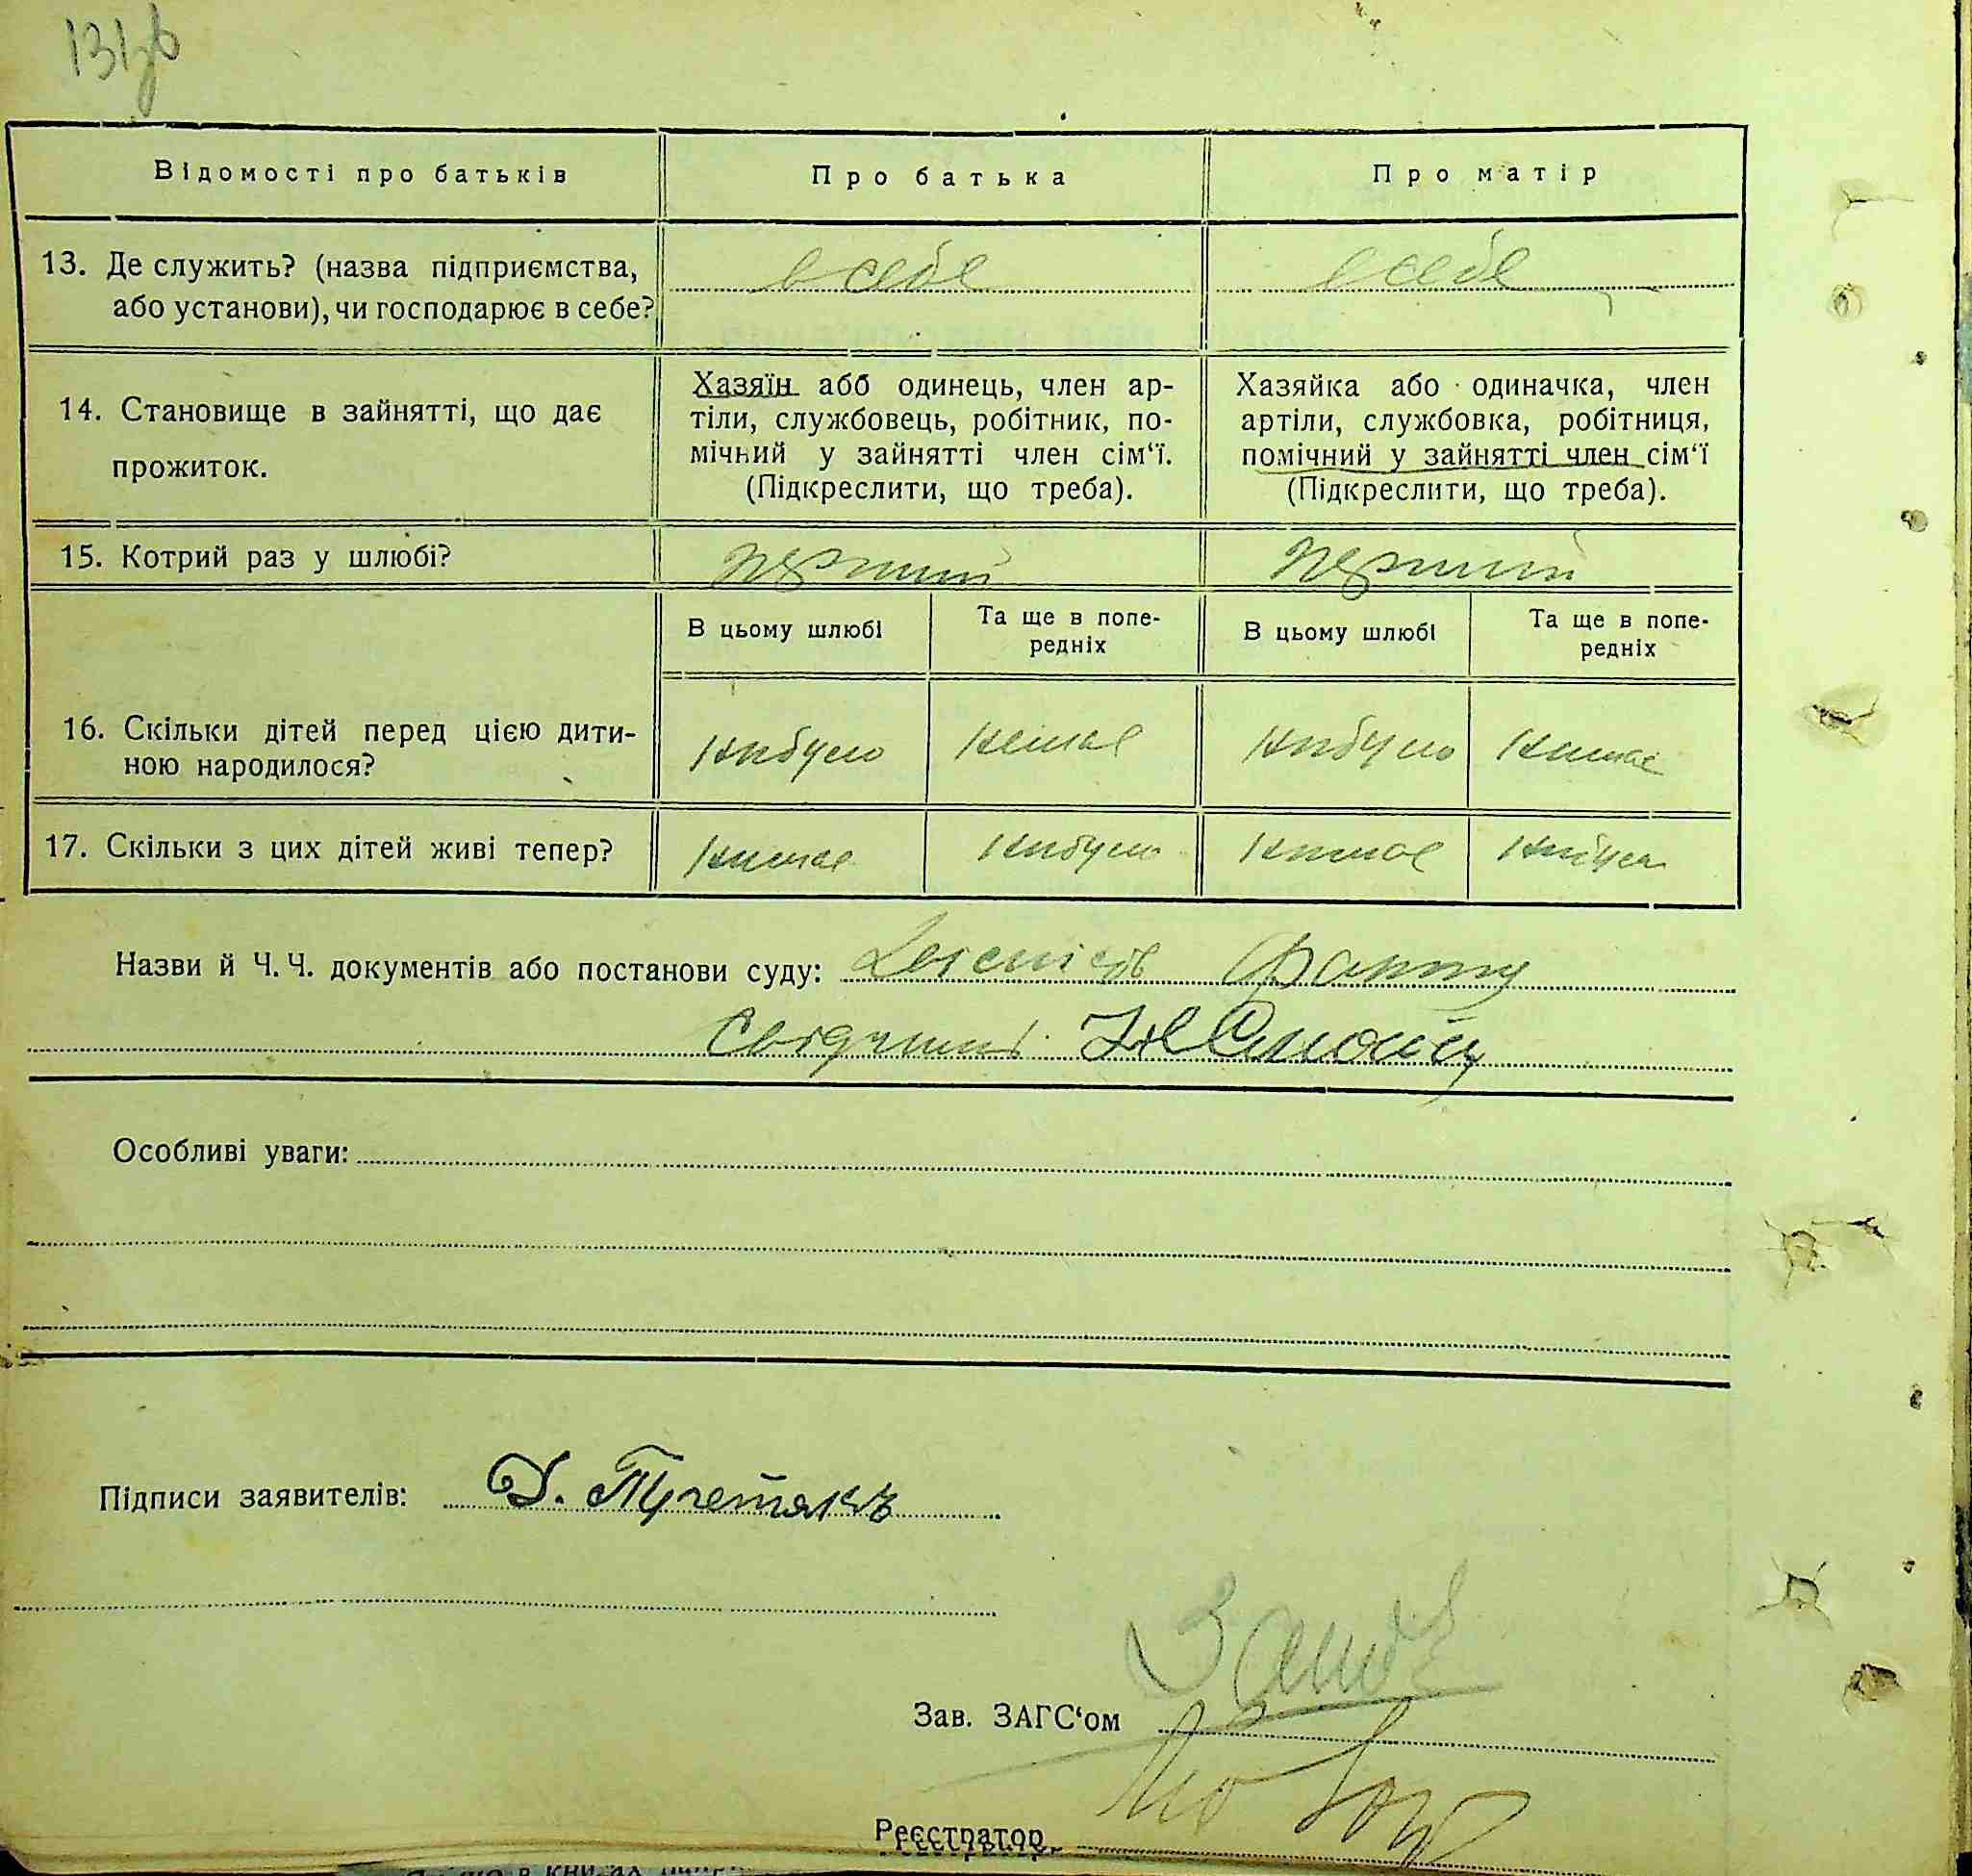 131зв
Відомості про батьків
Про батька
Про матір
13. Де служить? (назва підприємства,
або установи), чи господарює в себе?
в себе
в себе
14. Становище в зайнятті, що дає
прожиток.
Хазяїн або одинець, член ар-
тіли, службовець, робітник, по-
мічний у зайнятті член сім‘ї.
(Підкреслити, що треба).
Хазяйка або одиначка, член
артіли, службовка, робітниця,
помічний у зайнятті член сім‘ї
(Підкреслити, що треба).
15. Котрий раз у шлюбі?
перший
перший
В цьому шлюбі
Та ще в попе-
редніх
В цьому шлюбі
Та ще в попе-
редніх
16. Скільки дітей перед цією дити-
ною народилося?
небуло
немає
небуло
немає
17. Скільки з цих дітей живі тепер?
немає
небуло
немає
небуло
Назви й Ч. Ч. документів або постанови суду:
Особливі уваги:
Підписи заявителів: Д. Третякъ
Зав. ЗАГС‘ом
Реєстратор